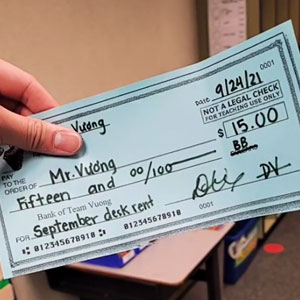 Vuong
0001
Date 9/24/21
NOT A LEGAL CHECK
FOR TEACHING USE ONLY
PAY TO THE ORDER OF Mr. Vuong $ 15.00
BB
Fifteen and 00/100
Bank of Team Vuong
September desk rent DV
012345678910 012345678910 0001